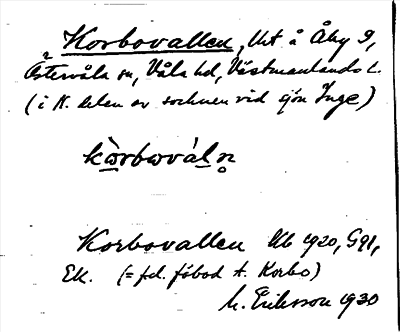 Korbovallen, lht å Åby 9,
Östervåla sn, Våla hd, Västmanlands l.
(i N. delen av socknen vid sjön Inge)
kòrbovál n̥
Korbovallen Kb 1920, G91,
EK. (= fd. fäbod t. Korbo)
M. Eriksson 1930